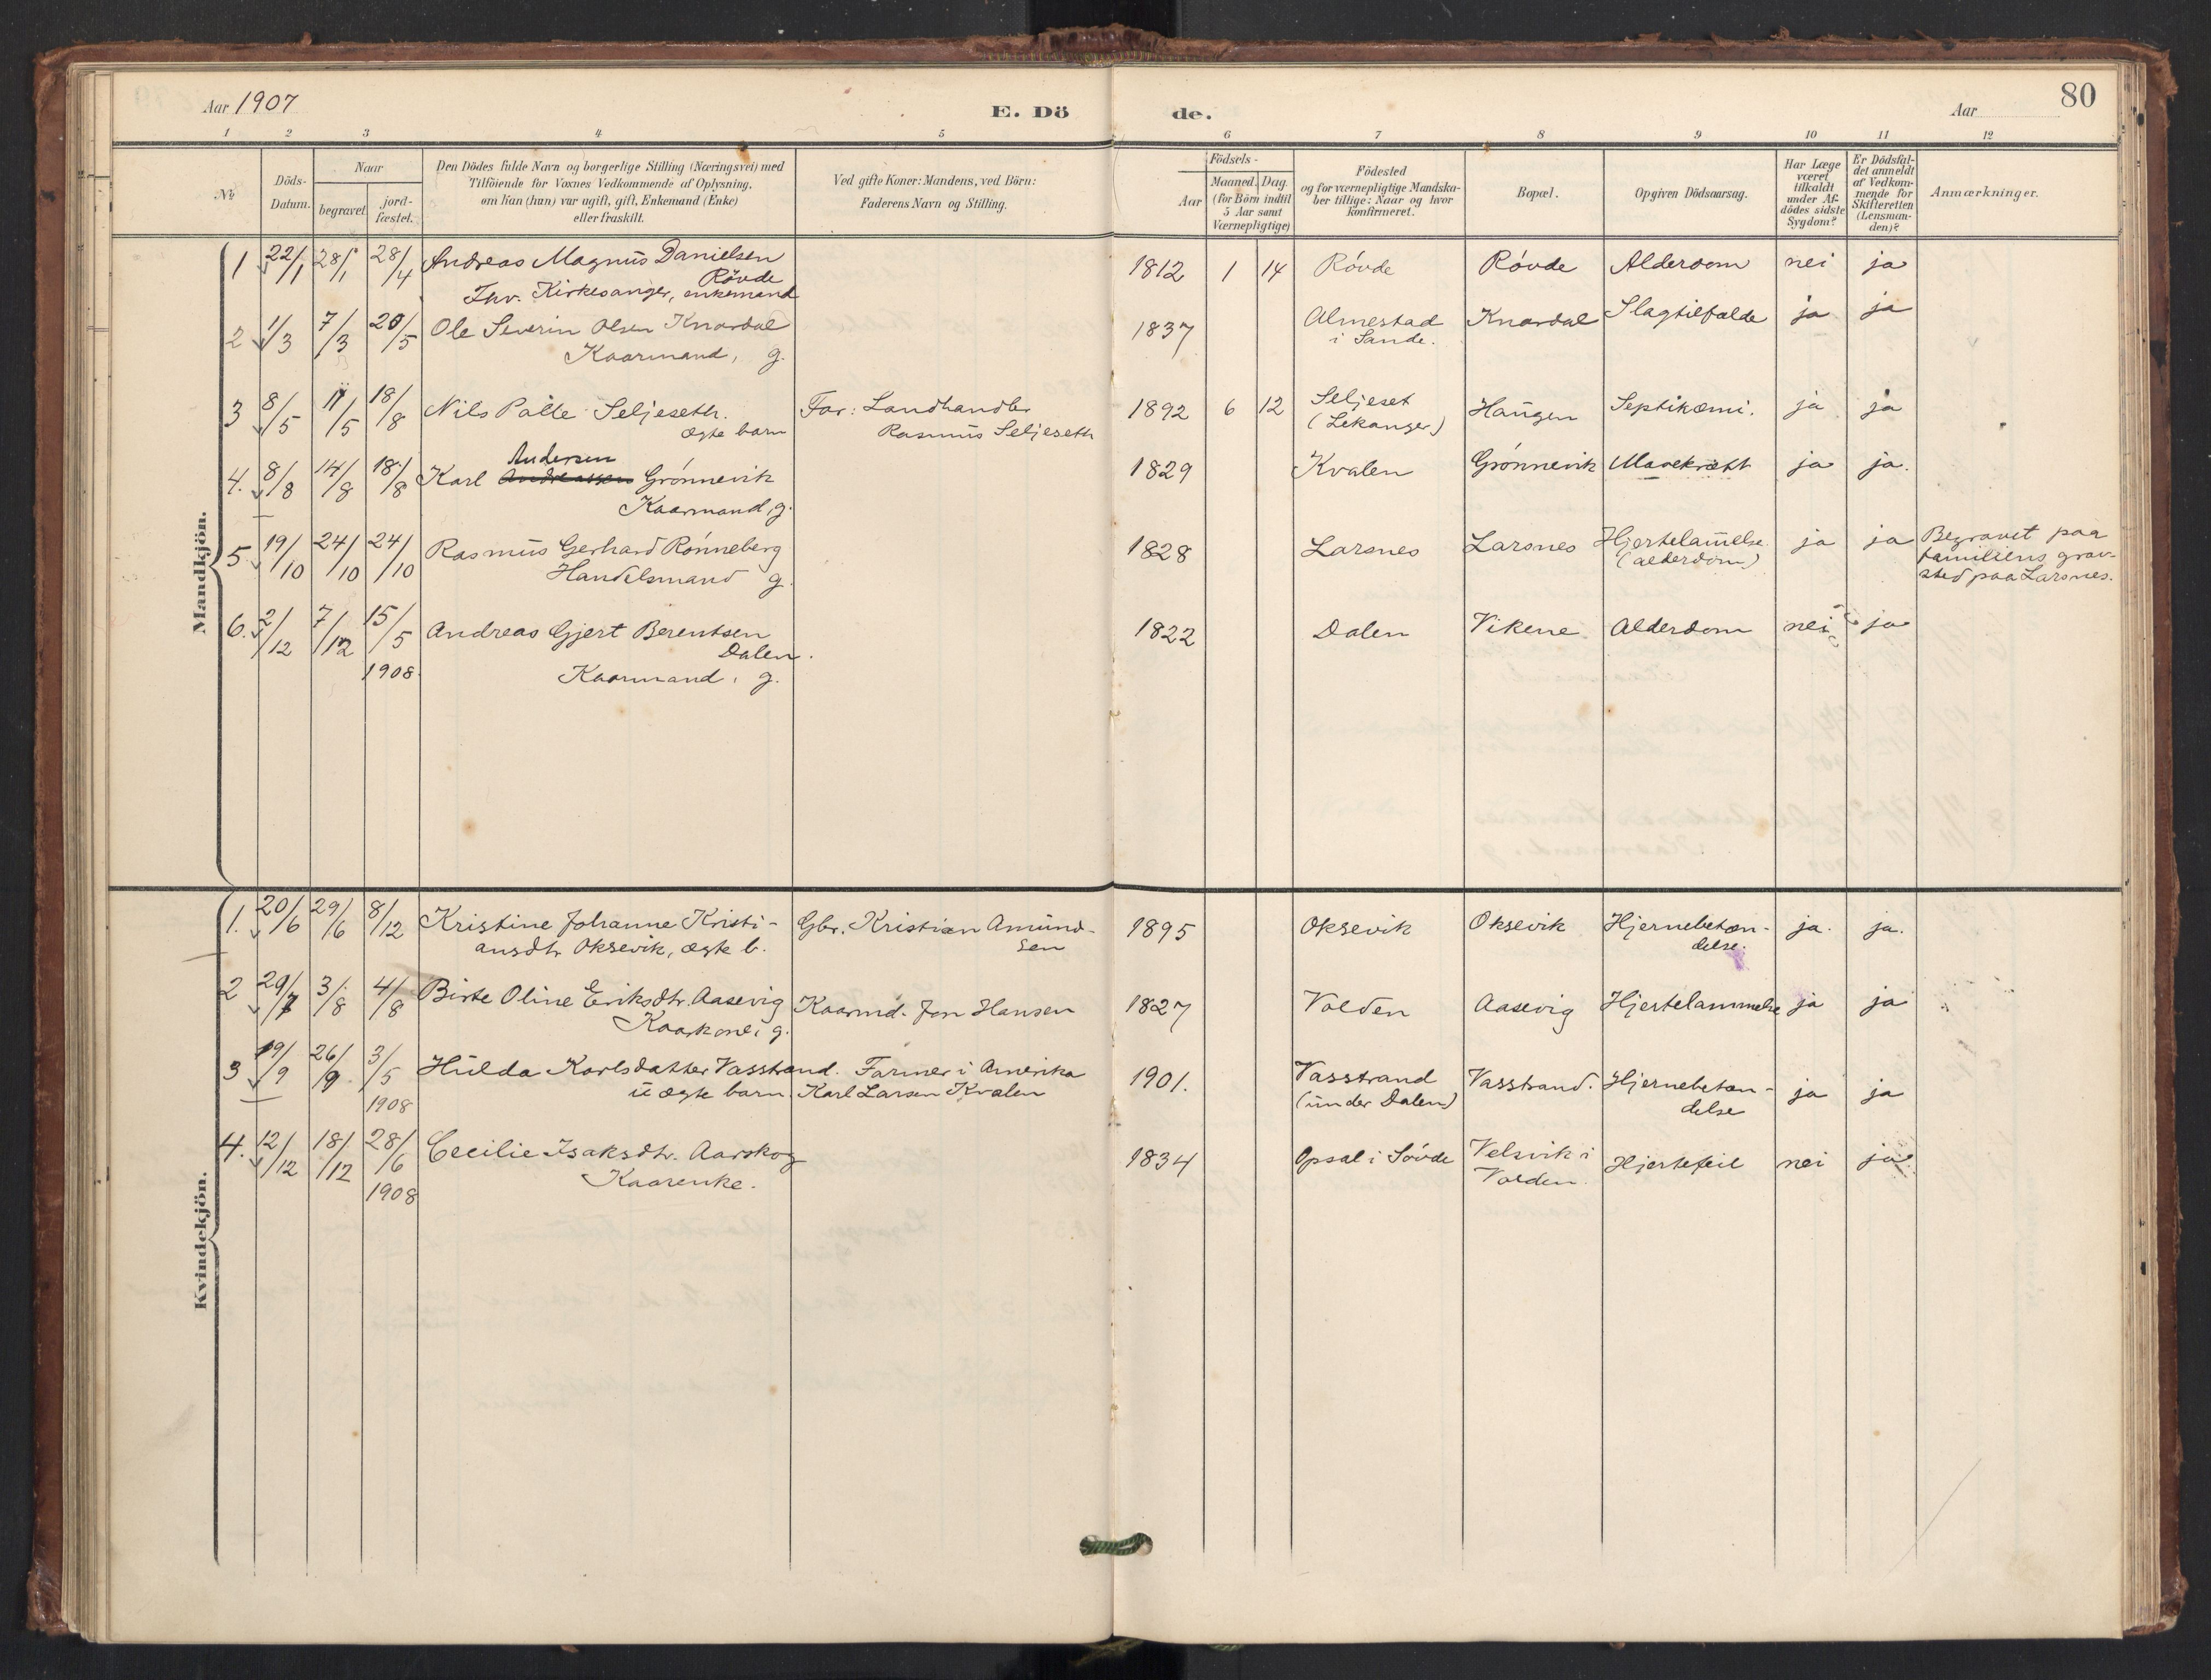 Aar 1907
E. Dö
de.
Aar
80
1 2 3 4 5 6 7 8 9 10 11 12
No.
Döds-
Datum.
Naar
begravet
jord-
fæstet.
Den Dödes fulde Navn og borgerlige Stilling (Næringsvei) med
Tilföiende for Voxnes Vedkommende af Oplysning,
om han (hun) var ugift, gift, Enkemand (Enke)
eller fraskilt.
Ved gifte Koner: Mandens, ved Börn:
Faderens Navn og Stilling.
Födsels-
Aar
Maaned. Dag.
(for Börn indtil
5 Aar samt
Værnepligtige)
Födested
og for værnepligtige Mandska-
ber tillige: Naar og hvor
konfirmeret.
Bopæl.
Opgiven Dödsaarsag.
Har Læge
været
tilkaldt
under Af-
dödes sidste
Sygdom?
Er Dödsfal-
det anmeldt
af Vedkom-
mende for
Skifteretten
(Lensman-
den)?
Anmærkninger.
Mandkjön.
1 22/1 28/1 28/4 Andreas Magnus Danielsen 1812 1 14 Róvde Róvde Alderdom nei ja
Róvde
Fhv. Kirkesanger, enkemand
2 1/3 7/3 20/5 Ole Severin Olsen Knardal 1837 Almestad Knardal Slagtilfælde ja ja
Kaarmand, g. i Sande.
3 8/5 11/5 18/8 Nils Palle Seljeseth. Far: Landhandler 1892 6 12 Seljeset Haugen Septikæmi. ja ja
ægte barn Rasmus Seljeseth (Lekanger)
Andersen
4. 8/8 14/8 18/8 Karl Andreassen Grónnevik 1829 Kvalen Grónnevik Mavekræft ja ja.
Kaarmand, g.
5. 19/10 24/10 24/10 Rasmus Gerhard Rónneberg 1828 Larsnes Larsnes Hjertelamelse ja ja Begravet paa
Handelsmand g. (alderdom) familiens grav-
sted paa Larsnes.
6. 2/12 7/12 15/5 Andreas Gjert Berentsen 1822 Dalen Vikene Alderdom nei ja
Dalen.
1908. Kaarmand, g.
Kvindekjön.
1. 20/6 29/6 8/12 Kristine Johanne Kristi- Gbr. Kristian Amund- 1895 Oksevik Oksevik Hjernebetæn- ja. ja.
ansdtr Oksevik, ægte b. sen delse.
2 29/7 3/8 4/8 Birte Oline Eriksdtr. Aasevig Kaarmd. Jon Hansen 1827 Volden Aasevig Hjertelammelse ja ja
Kaarkone, g.
3 19/9 26/9 3/5 Hulda Karlsdatter Vasstrand. Farmer i Amerika 1901. Vasstrand Vasstrand. Hjernebetæn- ja ja
1908 uægte barn Karl Larsen Kvalen (under Dalen) delse
4. 12/12 18/12 28/6 Cecilie Isaksdtr. Aarskog 1834 Opsal i Sóvde Velsvik i Hjertefeil nei ja
1908 Kaarenke. Volden.